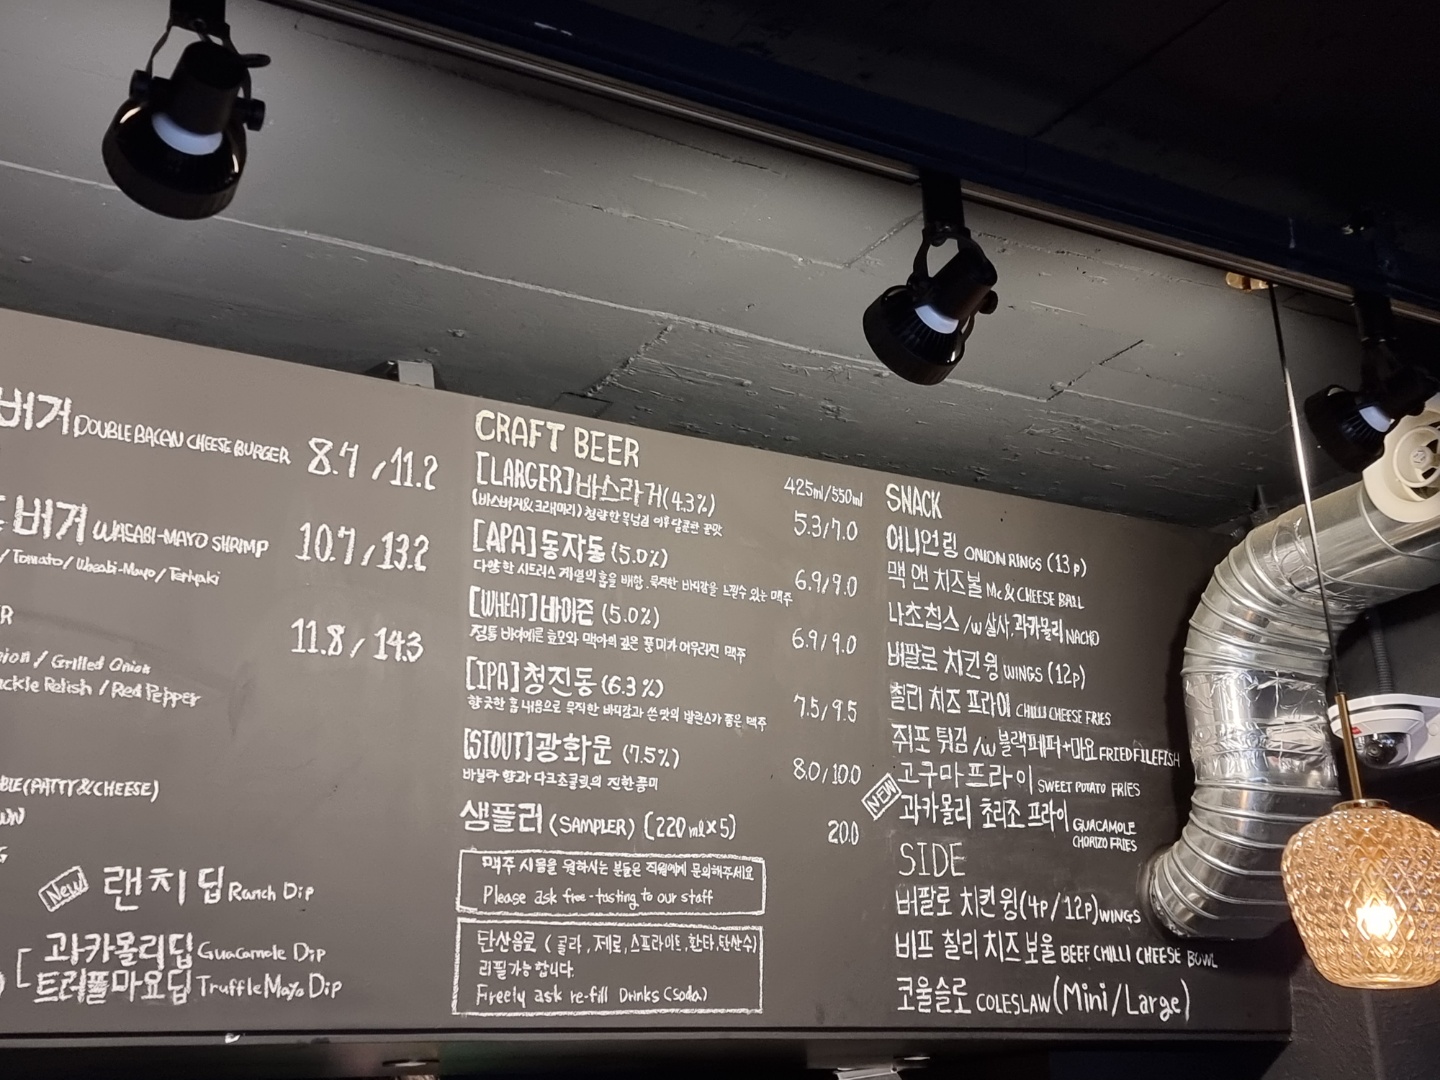 버거 DOUBLE BACAN CHEESE BURGER 8.7 / 11.2
버거 WASABI-MAYO SHRIMP 10.7 / 13.2
/ Tomato / Wasabi-Mayo / Teriyaki
11.8 / 14.3
/ Grilled Onion
Relish / Red Pepper
(PATTY & CHEESE)
New 랜치딥 Ranch Dip
과카몰리딥 Guacamole Dip
트러플마요딥 Truffle Mayo Dip
CRAFT BEER
425ml/550ml
[LARGER] 바스라거 (4.3%) 5.3/7.0
(바스버거&크래머리) 청량한 목넘김 이후 달콤한 꿀맛
[APA] 동자동 (5.0%) 6.9/9.0
다양한 시트러스 계열의 홉을 배합, 묵직한 바디감을 느낄수 있는 맥주
[WHEAT] 바이젠 (5.0%) 6.9/9.0
정통 바이에른 효모와 맥아의 깊은 풍미가 어우러진 맥주
[IPA] 청진동 (6.3%) 7.5/9.5
향긋한 홉 내음으로 묵직한 바디감과 쓴맛의 발란스가 좋은 맥주
[STOUT] 광화문 (7.5%) 8.0/10.0
바닐라 향과 다크초콜릿의 진한 풍미
샘플러 (SAMPLER) (220ml×5) 20.0
맥주 시음을 원하시는 분들은 직원에게 문의해주세요
Please ask free-tasting to our staff
탄산음료 (콜라, 제로, 스프라이트, 환타, 탄산수)
리필가능합니다.
Freely ask re-fill Drinks (Soda)
SNACK
어니언링 ONION RINGS (13p)
맥 앤 치즈볼 Mc & CHEESE BALL
나초칩스 /w 살사, 과카몰리 NACHO
버팔로 치킨 윙 WINGS (12p)
칠리 치즈 프라이 CHILLI CHEESE FRIES
쥐포 튀김 /w 블랙페퍼+마요 FRIED FILEFISH
고구마프라이 SWEET POTATO FRIES
NEW 과카몰리 초리조 프라이 GUACAMOLE
CHORIZO FRIES
SIDE
버팔로 치킨 윙 (4p/12p) WINGS
비프 칠리 치즈 보울 BEEF CHILLI CHEESE BOWL
코울슬로 COLESLAW (Mini/Large)